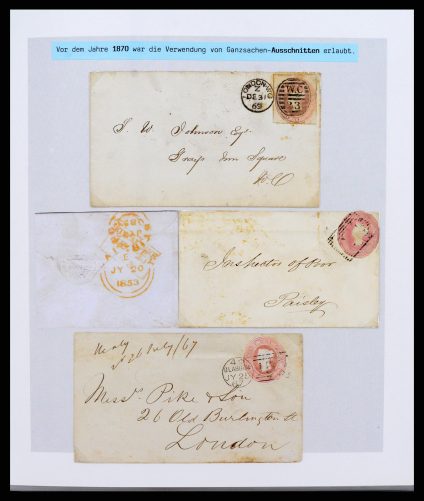 Vor dem Jahre 1870 war die Verwendung von Ganzsachen-Ausschnitten erlaubt.
LONDON W.C
Z
DE 31
69
W.C
33
J. W. Johnson Esq
Grays Inn Square
W.C
JY 20
1853
Inspector of Poor
Paisley
26 July /67
GLASGOW
JY 2
Messrs Pike & Son
26 Old Burlington St
London